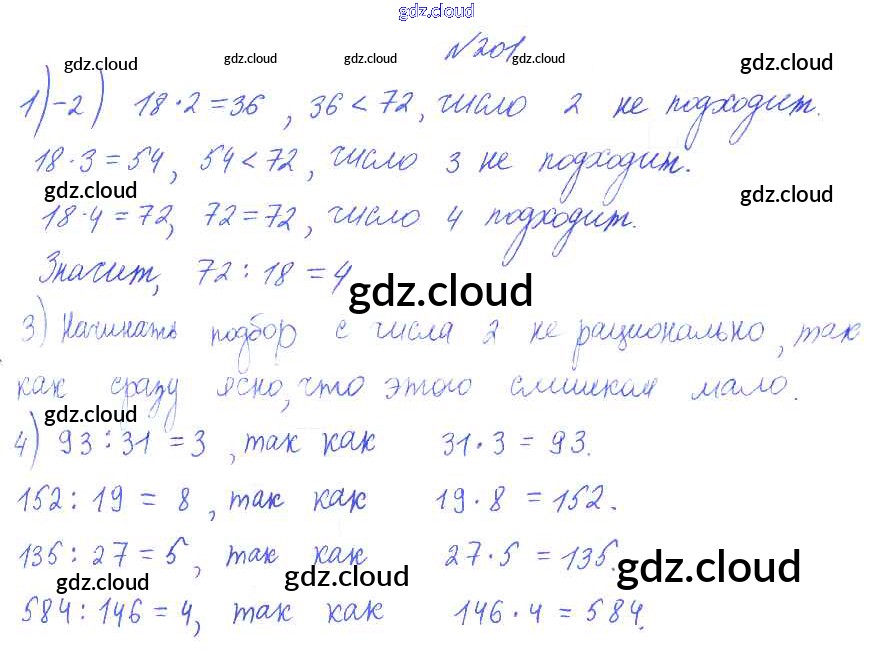 gdz.cloud
№201
gdz.cloud gdz.cloud gdz.cloud gdz.cloud
1)-2) 18·2=36, 36<72, число 2 не подходит.
18·3=54, 54<72, число 3 не подходит.
gdz.cloud gdz.cloud
18·4=72, 72=72, число 4 подходит.
Значит, 72:18=4
gdz.cloud
3) Начинать подбор с числа 2 не рационально, так
как сразу ясно, что этого слишком мало.
gdz.cloud
4) 93:31=3, так как 31·3=93.
152:19=8, так как 19·8=152.
135:27=5, так как 27·5=135.
gdz.cloud gdz.cloud gdz.cloud
584:146=4, так как 146·4=584.